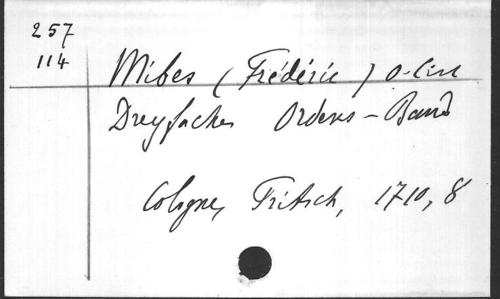 257
114
Mibes (Frédéric) O. Cist
Dreyfaches Ordens-Band
Cologne, Fritsch, 1710, 8